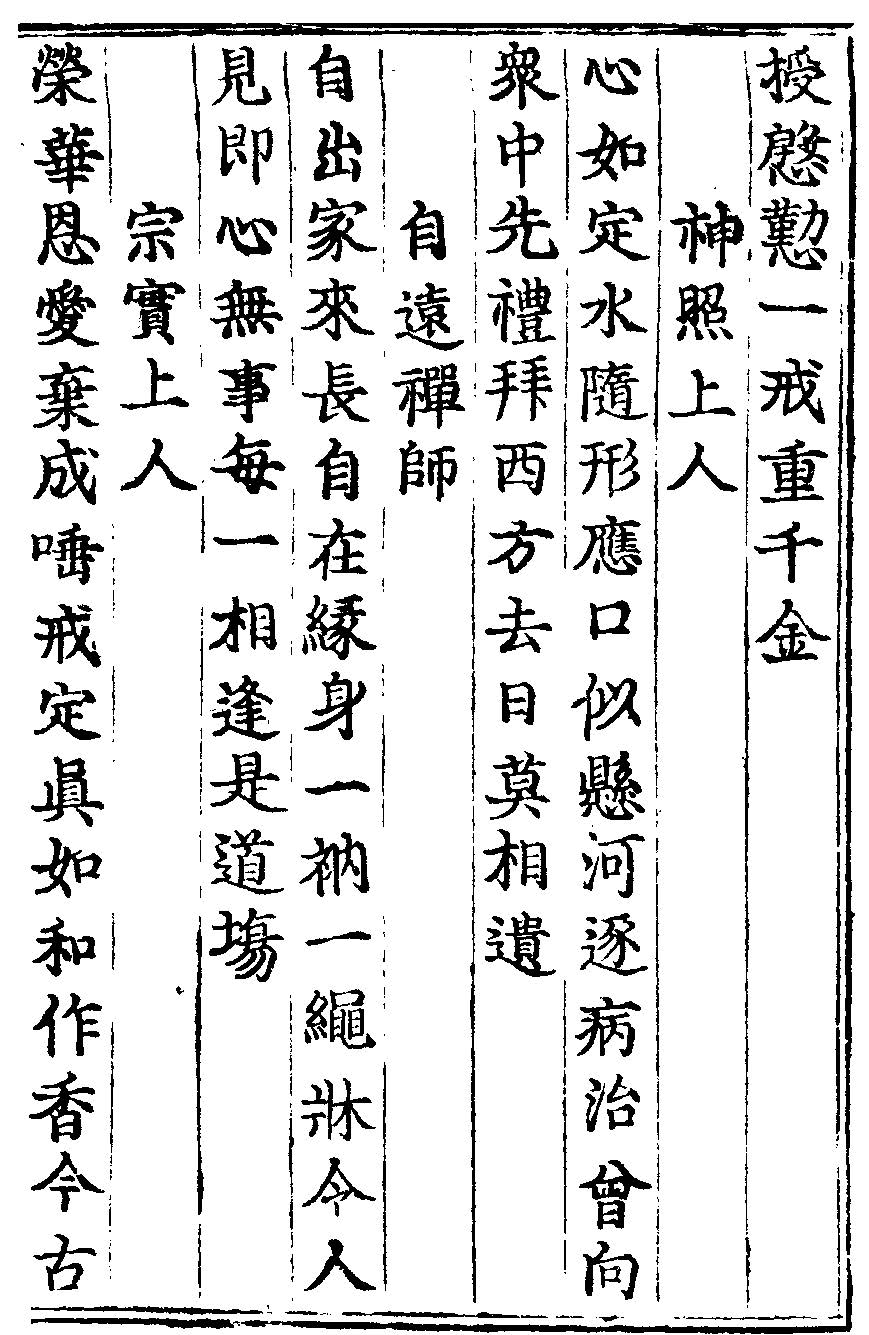 授慇懃一戒重千金
神照上人
心如定水隨形應口似懸河逐病治曾向
衆中先禮拜西方去日莫相遺
自遠禪師
自出家來長自在縁身一衲一繩牀今人
見即心無事每一相逢是道塲
宗實上人
榮華恩愛棄成唾戒定眞如和作香今古